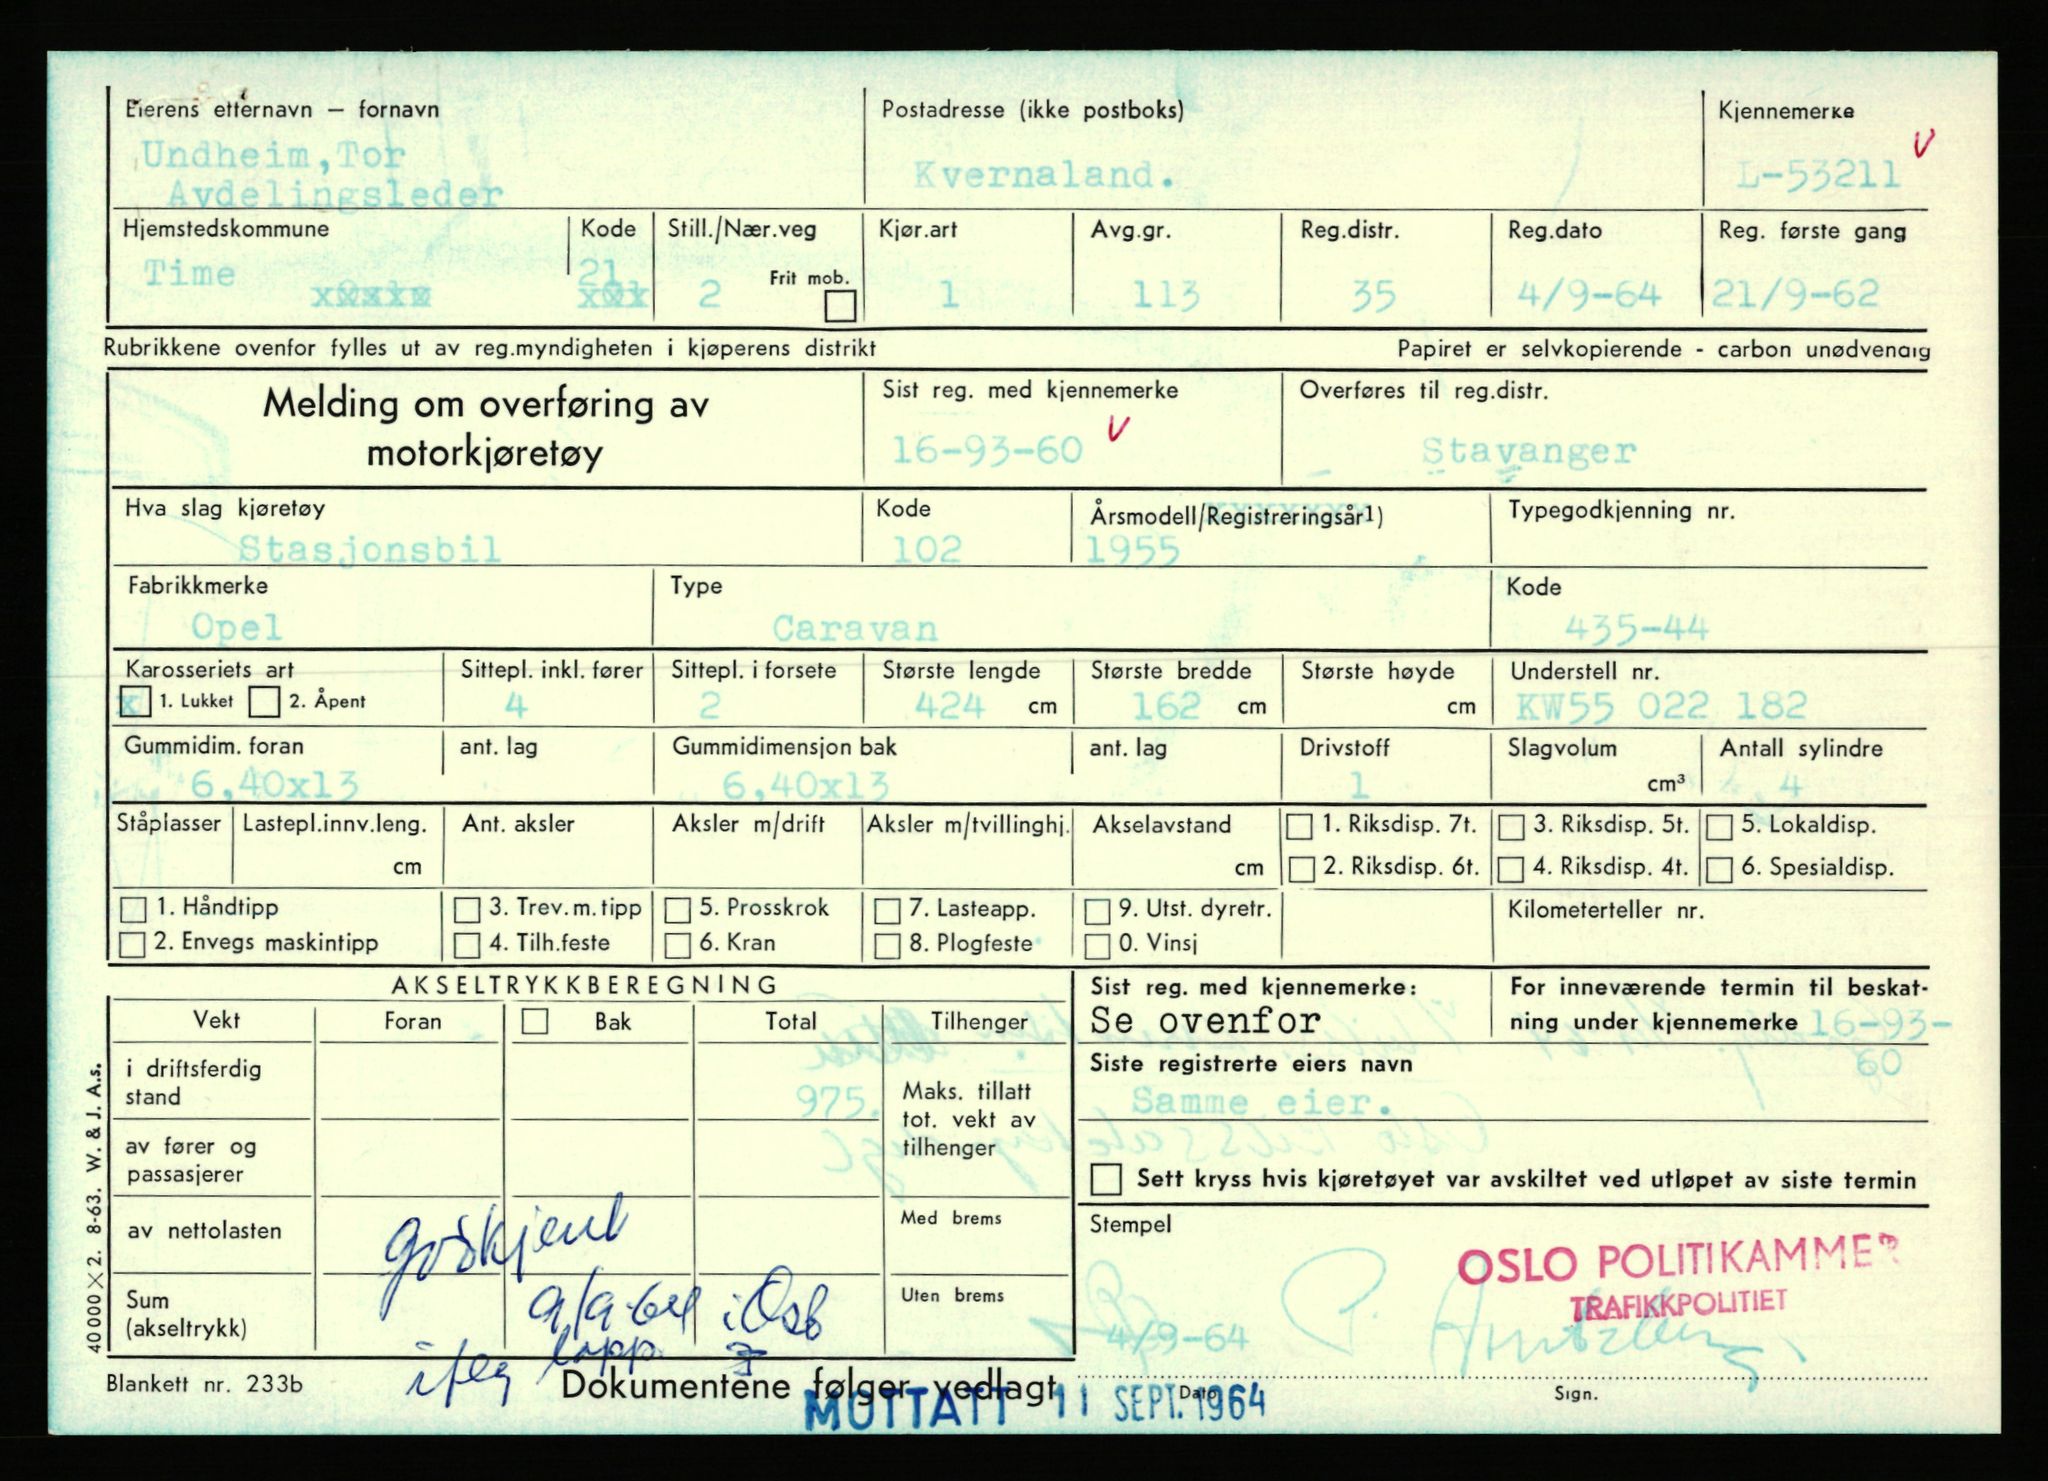 Eierens etternavn – fornavn Postadresse (ikke postboks) Kjennemerke
Undheim, Tor Kvernaland. L-53211
Avdelingsleder
Hjemstedskommune Kode Still./Nær.veg Kjør.art Avg.gr. Reg.distr. Reg.dato Reg. første gang
Time 21 Frit mob.
2 1 113 35 4/9-64 21/9-62
Rubrikkene ovenfor fylles ut av reg.myndigheten i kjøperens distrikt Papiret er selvkopierende - carbon unødvendig
Melding om overføring av Sist reg. med kjennemerke Overføres til reg.distr.
motorkjøretøy 16-93-60 Stavanger
Hva slag kjøretøy Kode Årsmodell/Registreringsår1) Typegodkjenning nr.
Stasjonsbil 102 1955
Fabrikkmerke Type Kode
Opel Caravan 435-44
Karosseriets art Sittepl. inkl. fører Sittepl. i forsete Største lengde Største bredde Største høyde Understell nr.
x 1. Lukket 2. Åpent 4 2 424 cm 162 cm cm KW55 022 182
Gummidim. foran ant. lag Gummidimensjon bak ant. lag Drivstoff Slagvolum Antall sylindre
6,40x13 6,40x13 1 cm³ 4
Ståplasser Lastepl.innv.leng. Ant. aksler Aksler m/drift Aksler m/tvillinghj. Akselavstand 1. Riksdisp. 7t. 3. Riksdisp. 5t. 5. Lokaldisp.
cm cm 2. Riksdisp. 6t. 4. Riksdisp. 4t. 6. Spesialdisp.
1. Håndtipp 3. Trev.m.tipp 5. Prosskrok 7. Lasteapp. 9. Utst. dyretr. Kilometerteller nr.
2. Envegs maskintipp 4. Tilh.feste 6. Kran 8. Plogfeste 0. Vinsj
AKSELTRYKKBEREGNING Sist reg. med kjennemerke: For inneværende termin til beskat-
Vekt Foran Bak Total Tilhenger Se ovenfor ning under kjennemerke 16-93-
i driftsferdig Siste registrerte eiers navn 60
stand 975. Maks. tillatt Samme eier.
tot. vekt av
av fører og tilhenger
passasjerer Sett kryss hvis kjøretøyet var avskiltet ved utløpet av siste termin
av nettolasten godkjent Med brems Stempel
OSLO POLITIKAMMER
Sum 9/9-64 i Oslo Uten brems TRAFIKKPOLITIET
(akseltrykk) 4/9-64
Blankett nr. 233b Dokumentene følger vedlagt Dato Sign.
MOTTATT 11 SEPT. 1964
40 000 × 2. 8-63. W. & J. A.s.